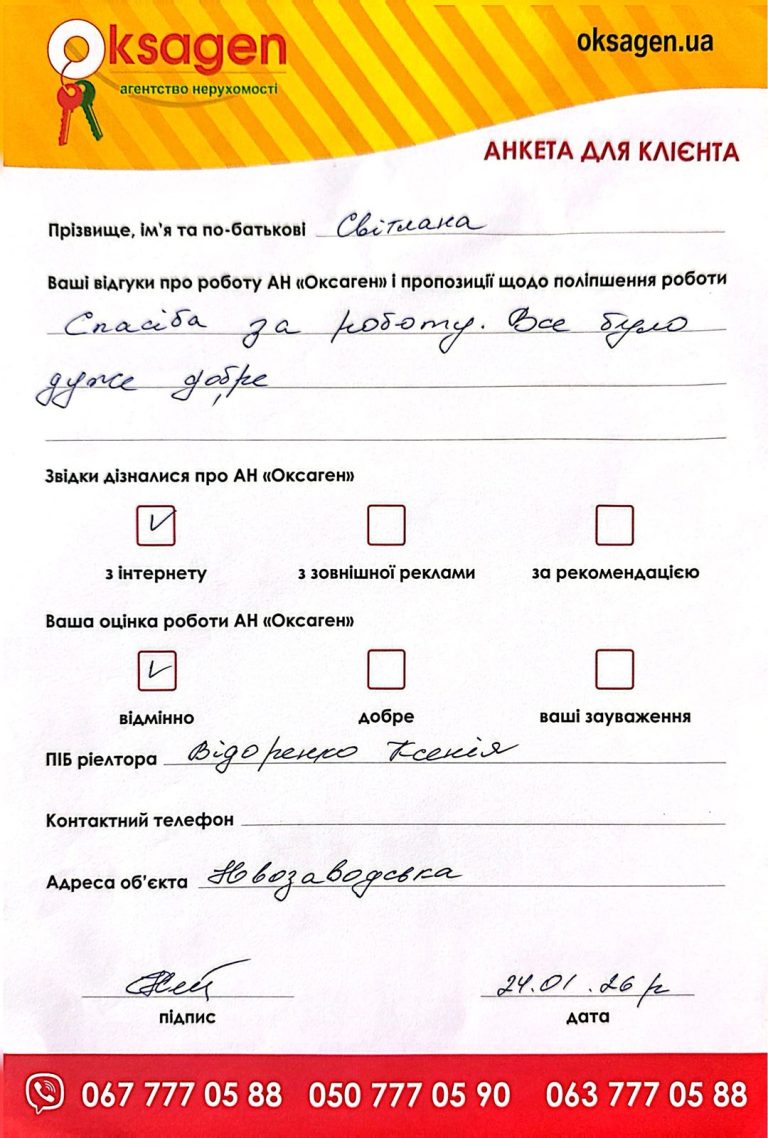 Oksagen
агентство нерухомості
oksagen.ua
АНКЕТА ДЛЯ КЛІЄНТА
Прізвище, ім'я та по-батькові Світлана
Ваші відгуки про роботу АН «Оксаген» і пропозиції щодо поліпшення роботи
Спасіба за роботу. Все було
дуже добре
Звідки дізналися про АН «Оксаген»
з інтернету з зовнішної реклами за рекомендацією
Ваша оцінка роботи АН «Оксаген»
відмінно добре ваші зауваження
ПІБ ріелтора Відоренко Ксенія
Контактний телефон
Адреса об'єкта Новозаводська
24.01.26 р
підпис дата
067 777 05 88 050 777 05 90 063 777 05 88